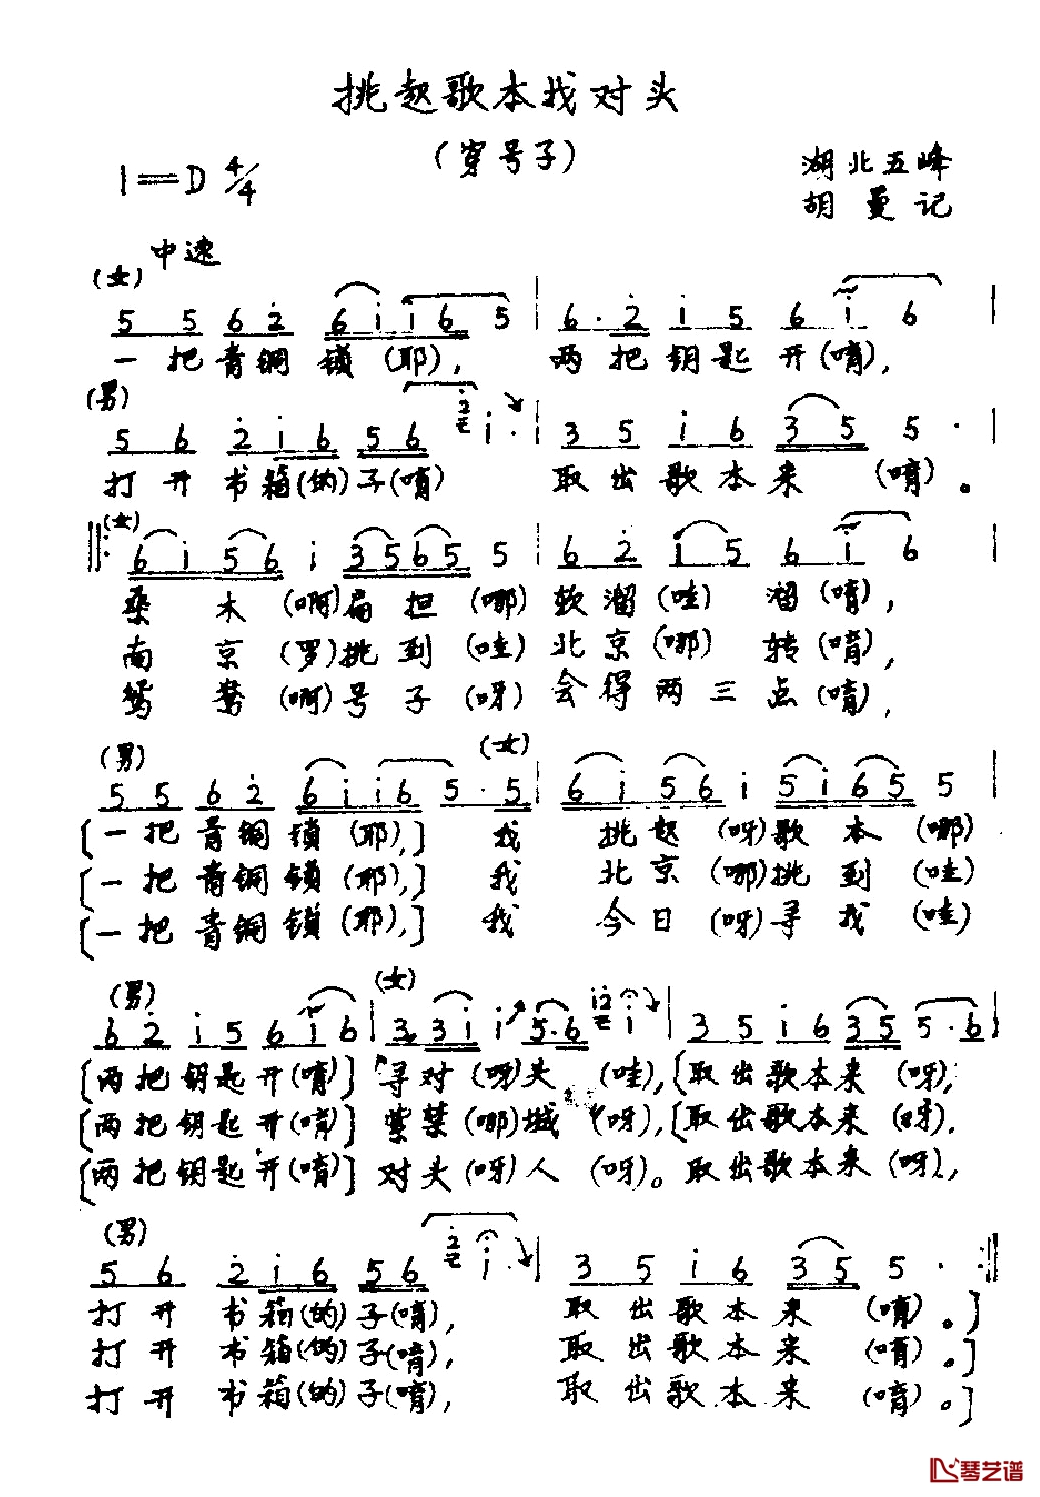 挑起歌本找对头
(穿号子)
1=D 4/4
湖北五峰
胡曼记
中速
(女)
5 5 6 2 6 i i 6 5 | 6. 2 i 5 6 i 6 |
一把青铜锁(耶), 两把钥匙开(唷),
(男)
5 6 2 i 6 5 6 2 i. 3 5 i 6 3 5 5. |
打开书箱(的)子(唷) 取出歌本来(唷)。
(女)
6 i 5 6 i 3 5 6 5 5 | 6 2 i 5 6 i 6 |
桑木(啊)扁担(哪)软溜(哇)溜(唷),
南京(罗)挑到(哇)北京(哪)转(唷),
鸳鸯(啊)号子(呀)会得两三点(唷),
(男) (女)
5 5 6 2 6 i i 6 5. 5 | 6 i 5 6 i 5 i 6 5 5 |
[一把青铜锁(耶),] 我挑起(呀)歌本(哪)
[一把青铜锁(耶),] 我北京(哪)挑到(哇)
[一把青铜锁(耶),] 我今日(呀)寻找(哇)
(男) (女)
6 2 i 5 6 i 6 | 3. 3 i i 5. 6 i 2 i | 3 5 i 6 3 5 5. 6 |
[两把钥匙开(唷)] 寻对(呀)头(哇), [取出歌本来(呀),
[两把钥匙开(唷)] 紫禁(哪)城(呀), [取出歌本来(呀),
[两把钥匙开(唷)] 对头(呀)人(呀)。取出歌本来(呀),
(男)
5 6 2 i 6 5 6 2 i. | 3 5 i 6 3 5 5. :||
打开书箱(的)子(唷), 取出歌本来(唷)。]
打开书箱(的)子(唷), 取出歌本来(唷)。]
打开书箱(的)子(唷), 取出歌本来(唷)。]
琴艺谱